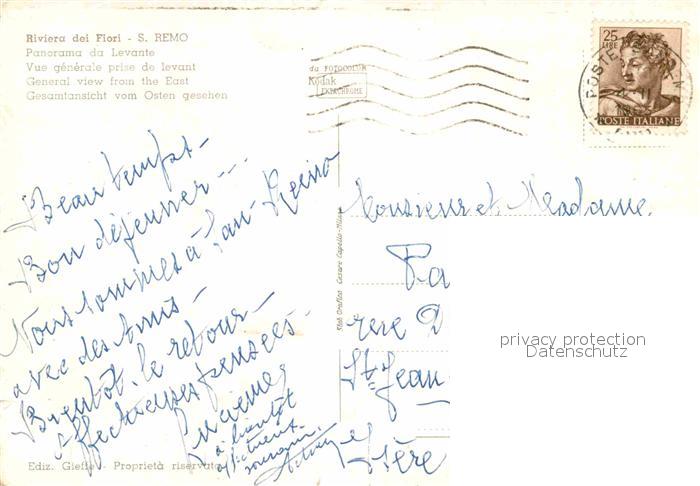 Riviera dei Fiori - S. REMO
Panorama da Levante
Vue générale prise de levant
General view from the East
Gesamtansicht vom Osten gesehen
da FOTOCOLOR
Kodak
EKTACHROME
25
LIRE
POSTE ITALIANE
Beau temps -
Bon déjeuner ---
Nous sommes à San-Remo
avec des Amis -
Bientôt le retour -
Affectueuses pensées -
à bientôt
Monsieur et Madame
St Jean
Isère
privacy protection
Datenschutz
Ediz. Gieffe - Proprietà riservata